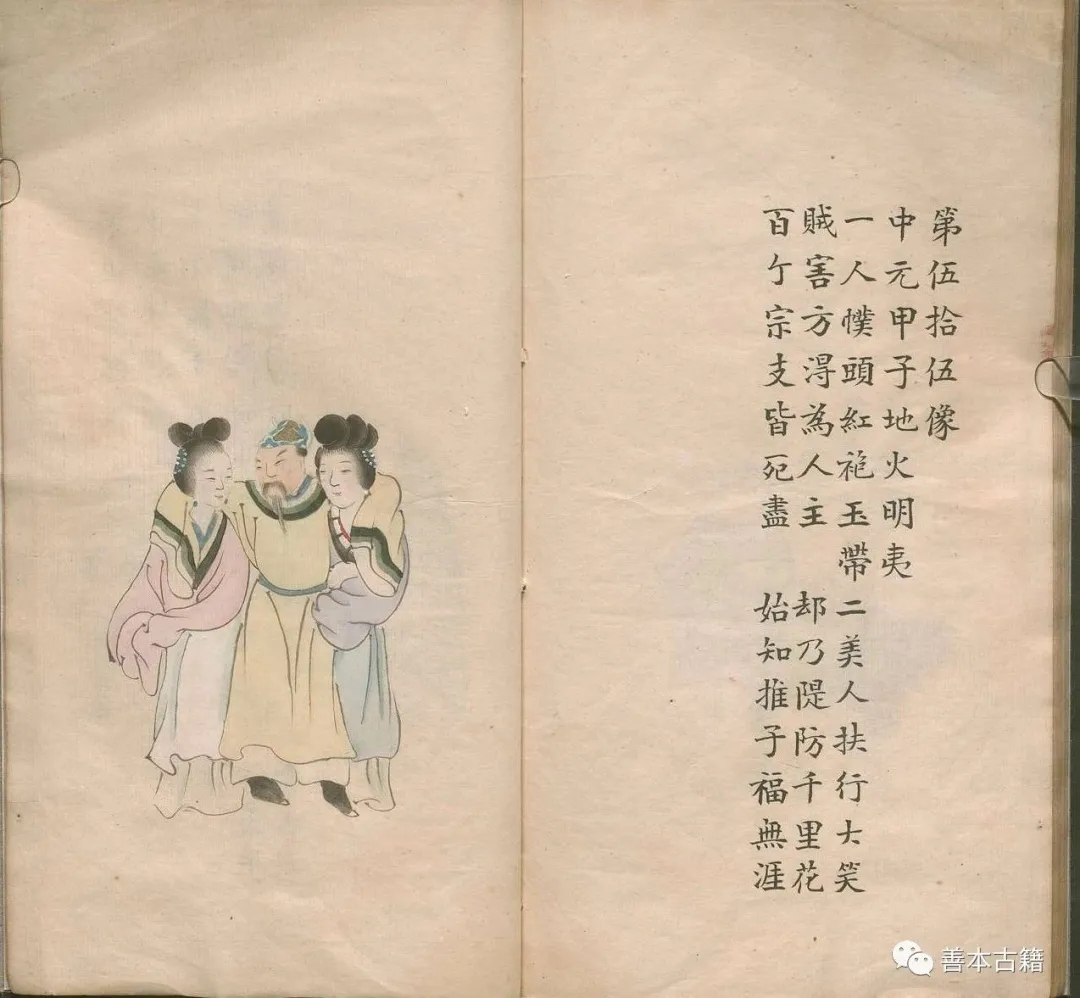 第伍拾伍像
中元甲子地火明夷
一人幞頭紅袍玉帶 二美人扶行大笑
賊害方淂為人主 却乃隄防千里花
百亇宗支皆死盡 始知推子福無涯
善本古籍